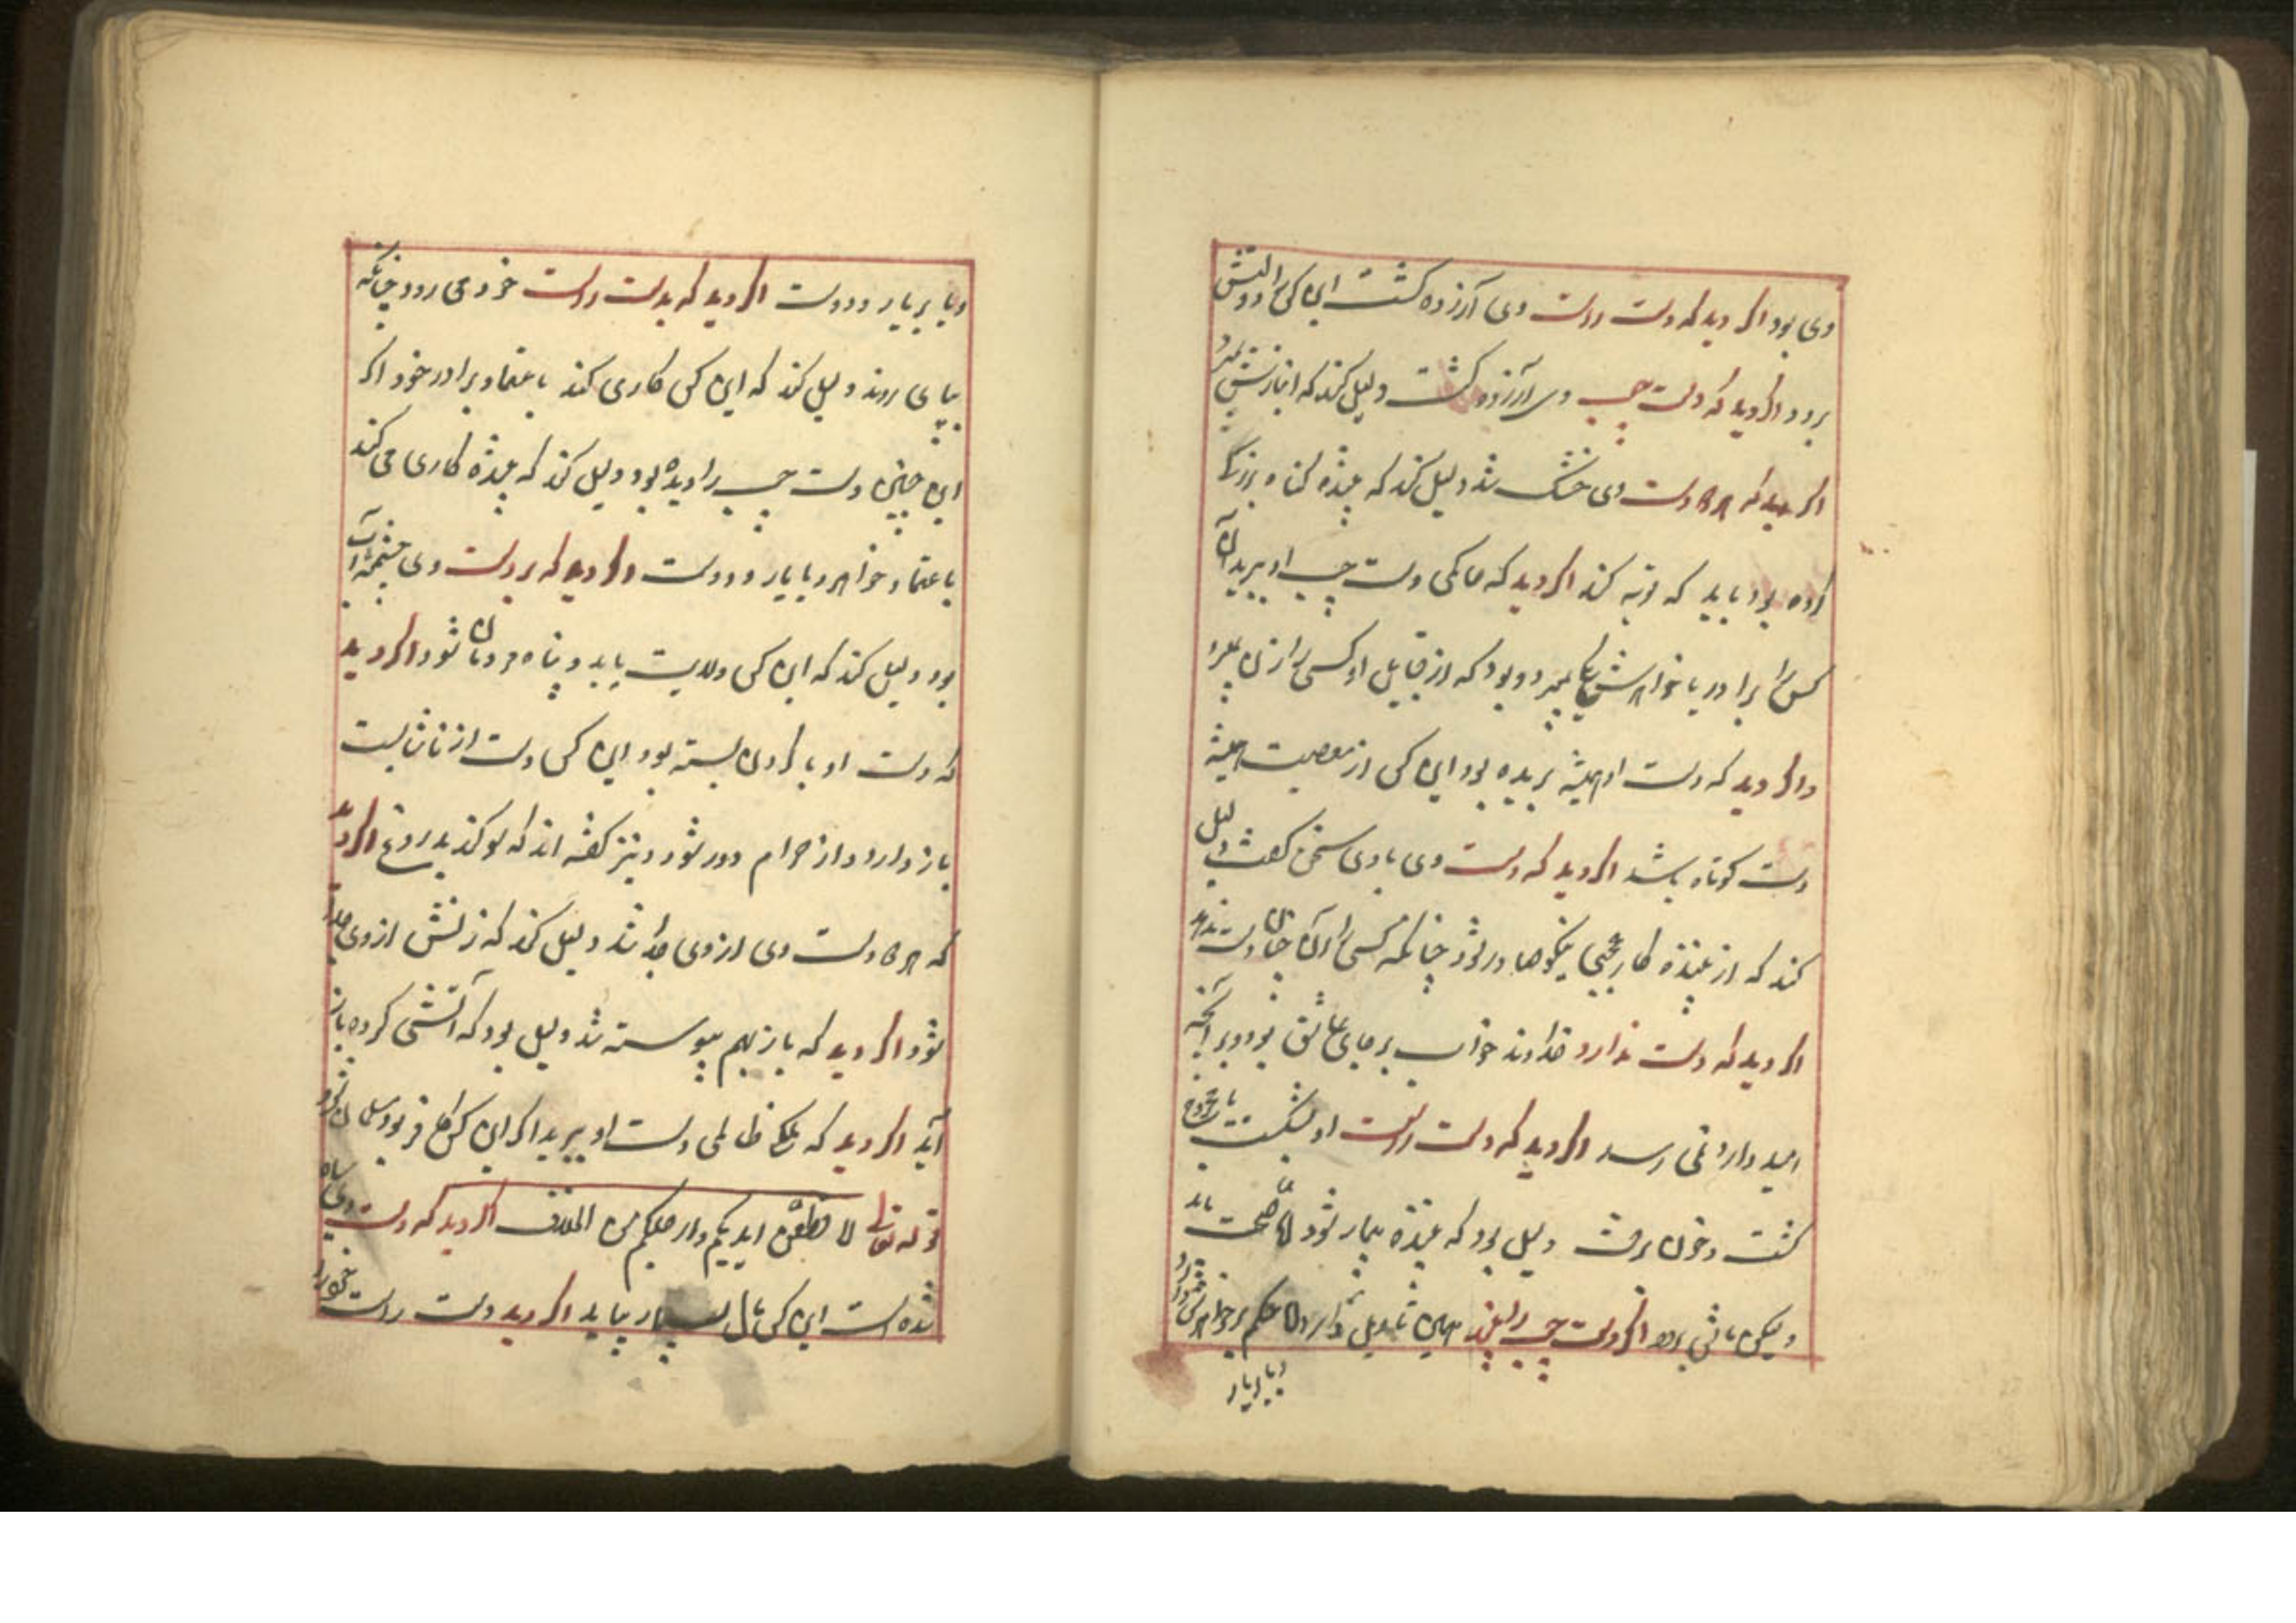 وی بود اگر دید که دست راست وی آرزده گشت این کس را دولتش
برود اگر دید که دست چپ وی آرزده گشت دلیل کند که انبازش بمیرد
اگر دید که هر دو دست وی خشک شد دلیل کند که بیننده گناه بزرگ
کرده بود باید که توبه کند اگر دید که حاکمی دست چپ او ببرید آن
کس را برادر یا خواهرش بمیرد و بود که از قبایل او کسی را از آن
و اگر دید که دست او همیشه بریده بود این کس از معصیت همیشه
دست کوتاه باشد اگر دید که دست وی با وی سخن گفت دلیل
کند که از بیننده کار نیکوها در شود چنانکه کسی را از آن چنان دست ندهد
اگر دید که دست ندارد خداوند خواب بر جای عاشق بود و بر آنچه
امید دارد نمی رسد اگر دید که دست راست او بشکست یا مجروح
گشت و خون برفت دلیل بود که بیننده بیمار شود اما صحت یابد
ولیکن اگر دست چپ را بیند همین تأویل دارد اما حکم بر خواهر کس
و یا بر یار
و یا بر یار و دوست اگر دید که بدست راست خود می رود چنانکه
بپای روند دلیل کند که این کس کاری کند باعتماد برادر خود اگر
این چنین دست چپ را دیده بود دلیل کند که بیننده کاری می کند
باعتماد خواهر و یا یار و دوست و اگر دید که بر دست وی چشمه آب
بود دلیل کند که این کس ولایت یابد و پناه مردمان شود اگر دید
که دست او با گردن بسته بود این کس دست از ناشایست
باز دارد و از حرام دور شود و نیز گفته اند که سوگند بدروغ اگر دید
که هر دو دست وی از وی جدا شد دلیل کند که زنش از وی جدا
شود اگر دید که باز بهم پیوسته شد دلیل بود که آشتی کرده باز
آید اگر دید که ملکی ظالمی دست او ببرید اگر این کس کافر بود مسلمان شود
قوله تعالی لا قطعن ایدیکم وارجلکم من خلاف اگر دید که دست وی سیاه
شده است این کس مال بسیار بیابد اگر دید دست راست خود را